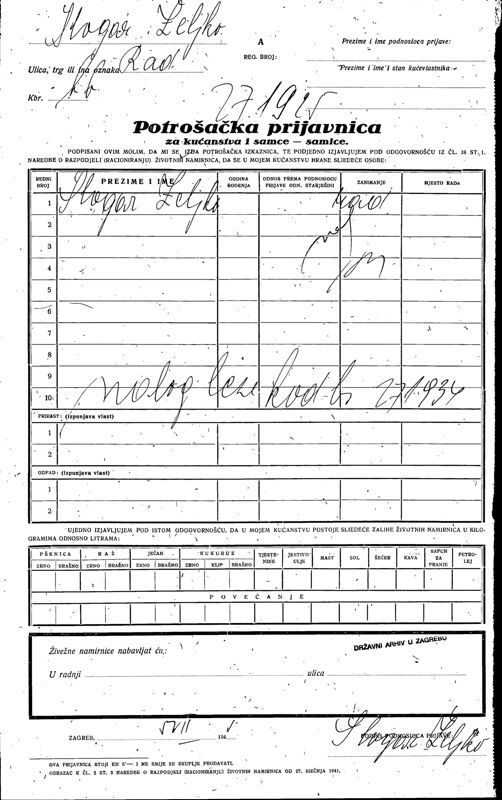 Slogar Željko
A
Prezime i ime podnosioca prijave:
REG. BROJ:
Ulica, trg ili ina oznaka Rad
"Prezime i ime i stan kućevlastnika"
Kbr. bb
27 1925
Potrošačka prijavnica
za kućanstva i samce — samice.
POTPISANI OVIM MOLIM, DA MI SE IZDA POTROŠAČKA IZKAZNICA, TE PODJEDNO IZJAVLJUJEM POD ODGOVORNOŠĆU IZ ČL. 18 ST. 1.
NAREDBE O RAZPODJELI (RACIONIRANJU) ŽIVOTNIH NAMIRNICA, DA SE U MOJEM KUĆANSTVU HRANE SLIEDEĆE OSOBE:
REDNI BROJ PREZIME I IME GODINA RODJENJA ODNOS PREMA PODNOSIOCU PRIJAVE ODN. STARJEŠINI ZANIMANJE MJESTO RADA
1 Slogar Željko rad
2
3
4
5
6
7
8
9
10 kod 27 1934
PRIRAST: (izpunjava vlast)
1
2
ODPAD: (izpunjava vlast)
1
2
UJEDNO IZJAVLJUJEM POD ISTOM ODGOVORNOŠĆU, DA U MOJEM KUĆANSTVU POSTOJE SLIEDEĆE ZALIHE ŽIVOTNIH NAMIRNICA U KILO-
GRAMIMA ODNOSNO LITRAMA:
PŠENICA RAŽ JEČAM KUKURUZ TJESTENINE JESTIVO ULJE MAST SOL ŠEĆER KAVA SAPUN ZA PRANJE PETROLEJ
ZRNO BRAŠNO ZRNO BRAŠNO ZRNO BRAŠNO ZRNO KLIP BRAŠNO
POVEĆANJE
Živežne namirnice nabavljat ću:
DRŽAVNI ARHIV U ZAGREBU
U radnji ulica
ZAGREB, 5 VII 194
PODPIS PODNOSIOCA PRIJAVE
Slogar Željko
OVA PRIJAVNICA STOJI KN 5'— I NE SMIJE SE SKUPLJE PRODAVATI.
OBRAZAC K ČL. 2 ST. 3 NAREDBE O RAZPODJELI (RACIONIRANJU) ŽIVOTNIH NAMIRNICA OD 27. SIEČNJA 1941.